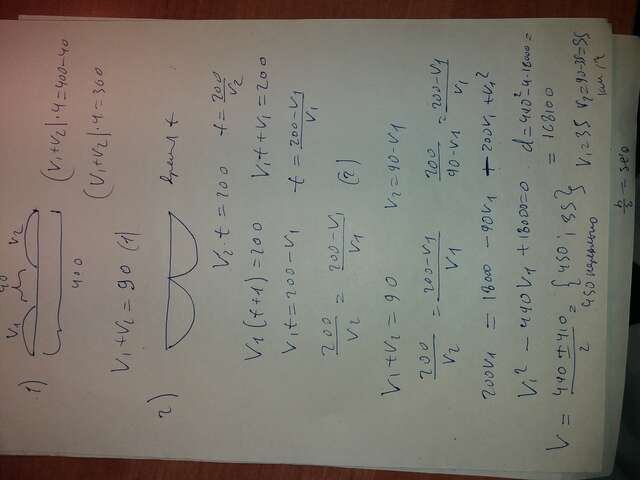 40
1) V1 V2
400
(V1+V2)·4=400-40
(V1+V2)·4=360
V1+V2=90 (1)
2) время t
V2·t=200 t=200/V2
V1(t+1)=200 V1t+V1=200
V1t=200-V1 t=200-V1/V1
200/V2 = 200-V1/V1 (2)
V1+V2=90 V2=90-V1
200/V2 = 200-V1/V1 200/90-V1 = 200-V1/V1
200V1 = 18000 -90V1 -200V1 +V1²
V1² - 490V1 +18000=0 d=490²-4·18000=
= 168100
V = 490±410/2 = {450; 35}
450 нереально
V1=35 V2=90-35=55
км/ч